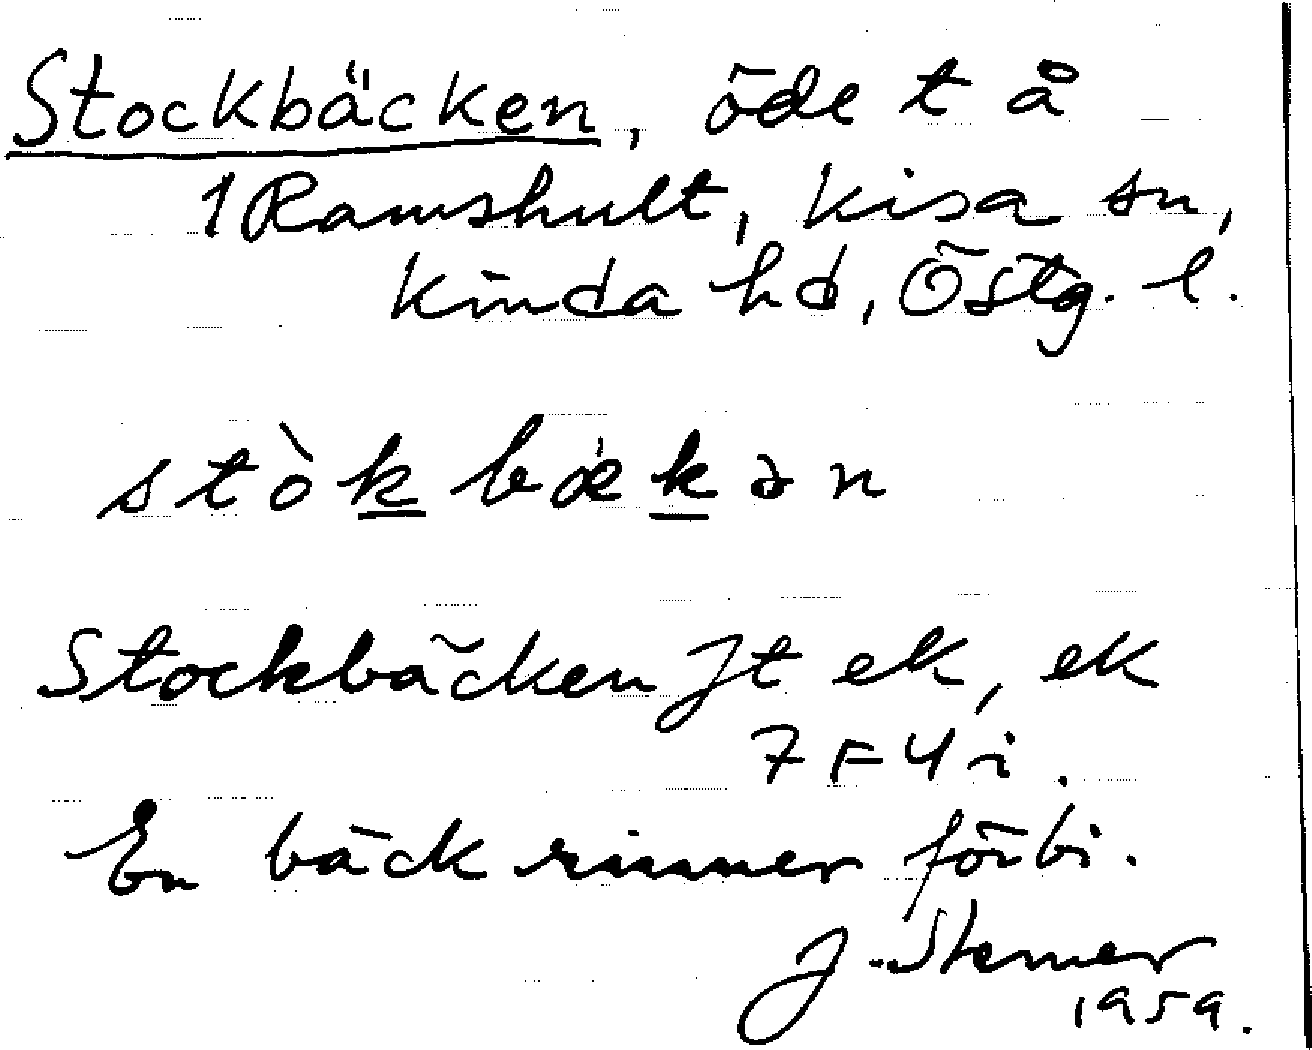 Stockbäcken, öde t å
1 Ramshult, Kisa sn,
Kinda hd, Östg. l.
stòkbækən
Stockbäcken Jt ek, ek
7F4i.
En bäck rinner förbi.
J. Sterner
1959.